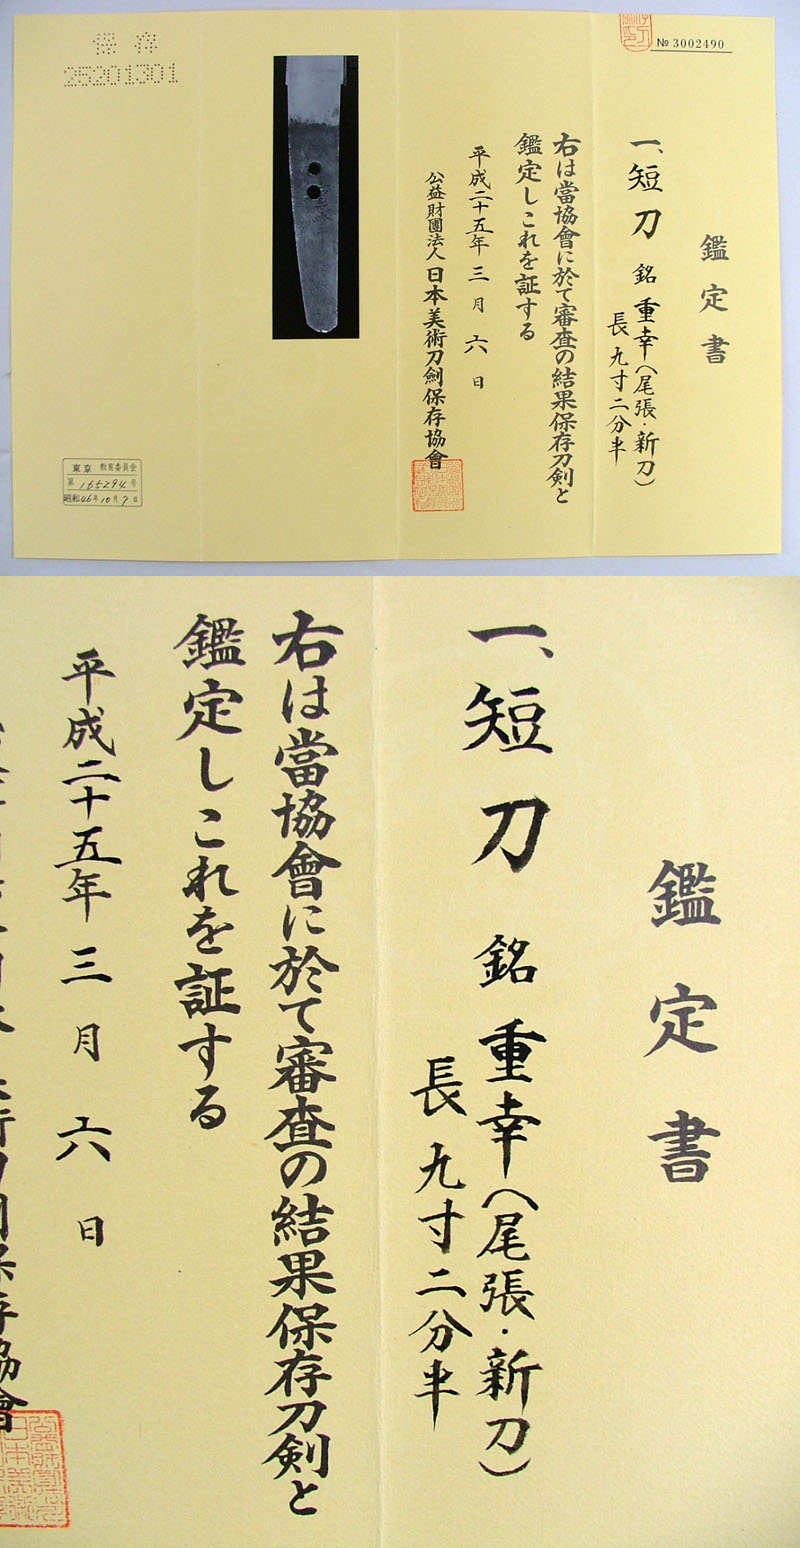 № 3002490
鑑定書
一、短刀 銘 重幸(尾張・新刀)
長 九寸二分半
右は當協會に於て審査の結果保存刀剣と
鑑定しこれを証する
平成二十五年 三月 六日
公益財團法人 日本美術刀劍保存協會
保存
25201301
東京 教育委員会
第 165294 号
昭和46年10月9日
鑑定書
一、短刀 銘 重幸(尾張・新刀)
長 九寸二分半
右は當協會に於て審査の結果保存刀剣と
鑑定しこれを証する
平成二十五年 三月 六日